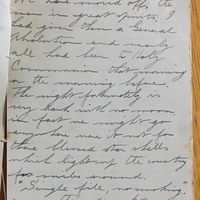 We had moved off, the
men in great spirits, I
had given them a General
Absolution and nearly
all had been to Holy
Communion that morning
or the morning before.
The night fortunately is
very dark with no moon,
in fact we might go
anywhere were it not for
those blessed star shells
which light up the country
for miles around.
"Single file, no smoking."